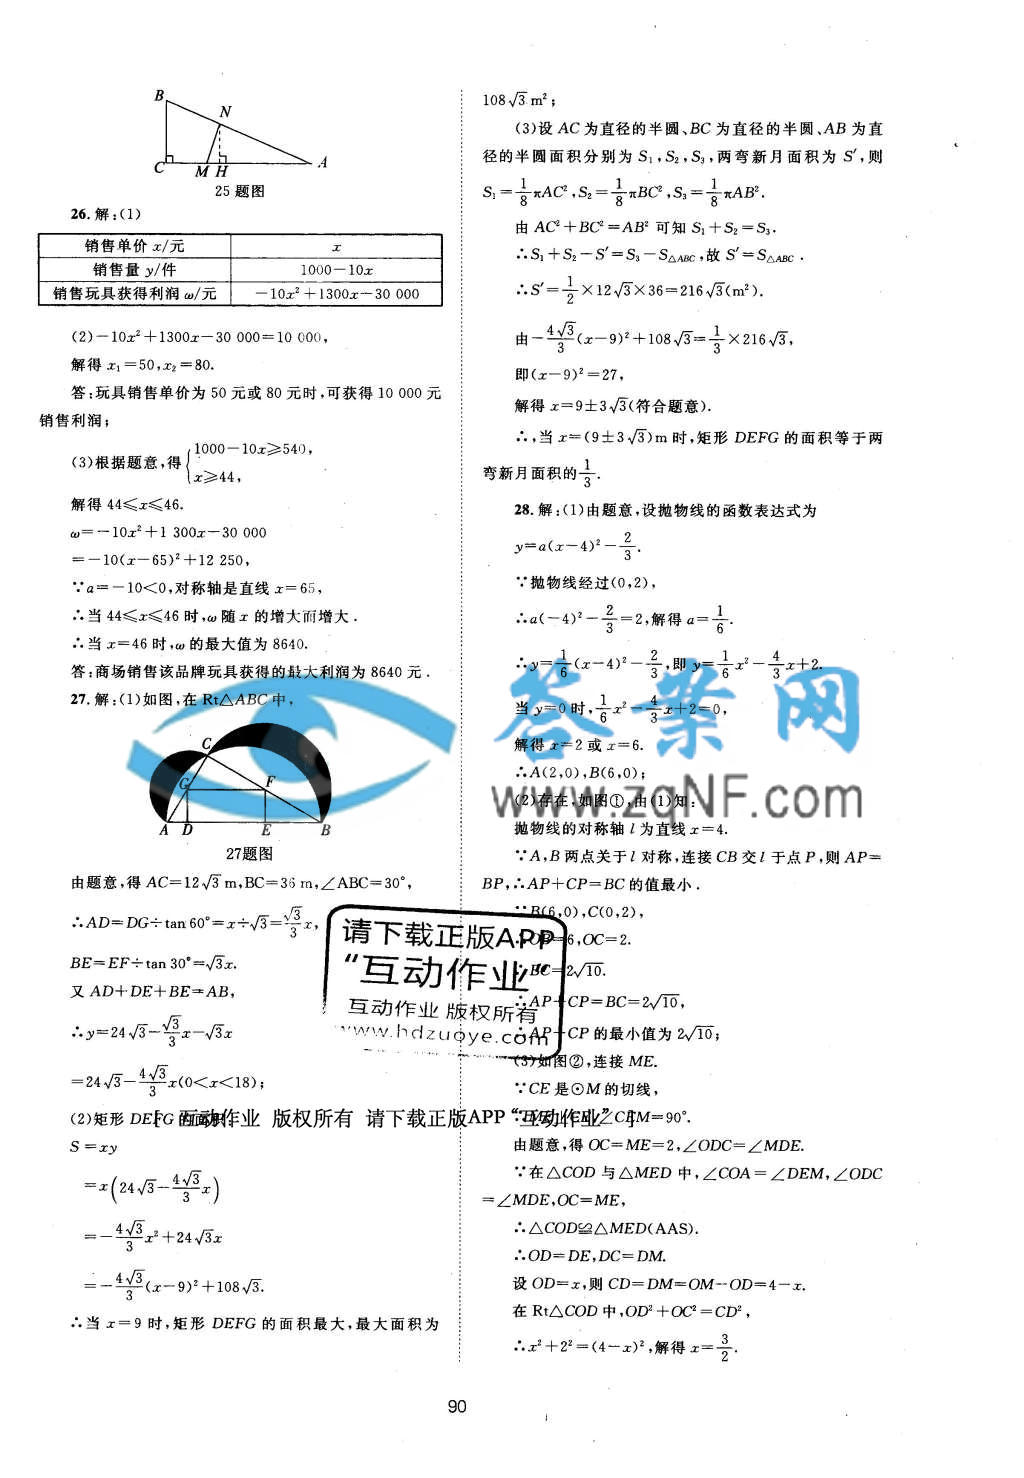 B
N
C M H A
25 题图
26. 解:(1)
销售单价 x/元 x
销售量 y/件 1000－10x
销售玩具获得利润 ω/元 －10x²＋1300x－30 000
(2)－10x²＋1300x－30 000＝10 000,
解得 x₁＝50,x₂＝80.
答:玩具销售单价为 50 元或 80 元时,可获得 10 000 元
销售利润;
(3)根据题意,得{1000－10x≥540,
x≥44,
解得 44≤x≤46.
ω＝－10x²＋1 300x－30 000
＝－10(x－65)²＋12 250,
∵a＝－10<0,对称轴是直线 x＝65,
∴当 44≤x≤46 时,ω 随 x 的增大而增大.
∴当 x＝46 时,ω 的最大值为 8640.
答:商场销售该品牌玩具获得的最大利润为 8640 元.
27. 解:(1)如图,在 Rt△ABC 中,
C
G F
A D E B
27题图
由题意,得 AC＝12√3 m,BC＝36 m,∠ABC＝30°,
∴AD＝DG÷tan 60°＝x÷√3＝√3/3 x,
BE＝EF÷tan 30°＝√3x.
又 AD＋DE＋BE＝AB,
∴y＝24√3－√3/3 x－√3x
＝24√3－4√3/3 x(0<x<18);
(2)矩形 DEFG 的面积
S＝xy
＝x(24√3－4√3/3 x)
＝－4√3/3 x²＋24√3x
＝－4√3/3 (x－9)²＋108√3.
∴当 x＝9 时,矩形 DEFG 的面积最大,最大面积为
108√3 m²;
(3)设 AC 为直径的半圆、BC 为直径的半圆、AB 为直
径的半圆面积分别为 S₁,S₂,S₃,两弯新月面积为 S′,则
S₁＝1/8 πAC²,S₂＝1/8 πBC²,S₃＝1/8 πAB².
由 AC²＋BC²＝AB² 可知 S₁＋S₂＝S₃.
∴S₁＋S₂－S′＝S₃－S△ABC,故 S′＝S△ABC.
∴S′＝1/2×12√3×36＝216√3(m²).
由－4√3/3 (x－9)²＋108√3＝1/3×216√3,
即(x－9)²＝27,
解得 x＝9±3√3(符合题意).
∴,当 x＝(9±3√3)m 时,矩形 DEFG 的面积等于两
弯新月面积的1/3.
28. 解:(1)由题意,设抛物线的函数表达式为
y＝a(x－4)²－2/3.
∵抛物线经过(0,2),
∴a(－4)²－2/3＝2,解得 a＝1/6.
∴y＝1/6(x－4)²－2/3,即 y＝1/6 x²－4/3 x＋2.
当 y＝0 时,1/6 x²－4/3 x＋2＝0,
解得 x＝2 或 x＝6.
∴A(2,0),B(6,0);
(2)存在,如图①,由(1)知:
抛物线的对称轴 l 为直线 x＝4.
∵A,B 两点关于 l 对称,连接 CB 交 l 于点 P,则 AP＝
BP,∴AP＋CP＝BC 的值最小.
∵B(6,0),C(0,2),
∴OB＝6,OC＝2.
∴BC＝2√10.
∴AP＋CP＝BC＝2√10,
∴AP＋CP 的最小值为 2√10;
(3)如图②,连接 ME.
∵CE 是⊙M 的切线,
M＝90°.
由题意,得 OC＝ME＝2,∠ODC＝∠MDE.
∵在△COD 与△MED 中,∠COA＝∠DEM,∠ODC
＝∠MDE,OC＝ME,
∴△COD≌△MED(AAS).
∴OD＝DE,DC＝DM.
设 OD＝x,则 CD＝DM＝OM－OD＝4－x.
在 Rt△COD 中,OD²＋OC²＝CD²,
∴x²＋2²＝(4－x)²,解得 x＝3/2.
90
答案网
www.zqNF.com
请下载正版APP
“互动作业”
互动作业 版权所有
www.hdzuoye.com
[ 互动作业 版权所有 请下载正版APP“互动作业” ]